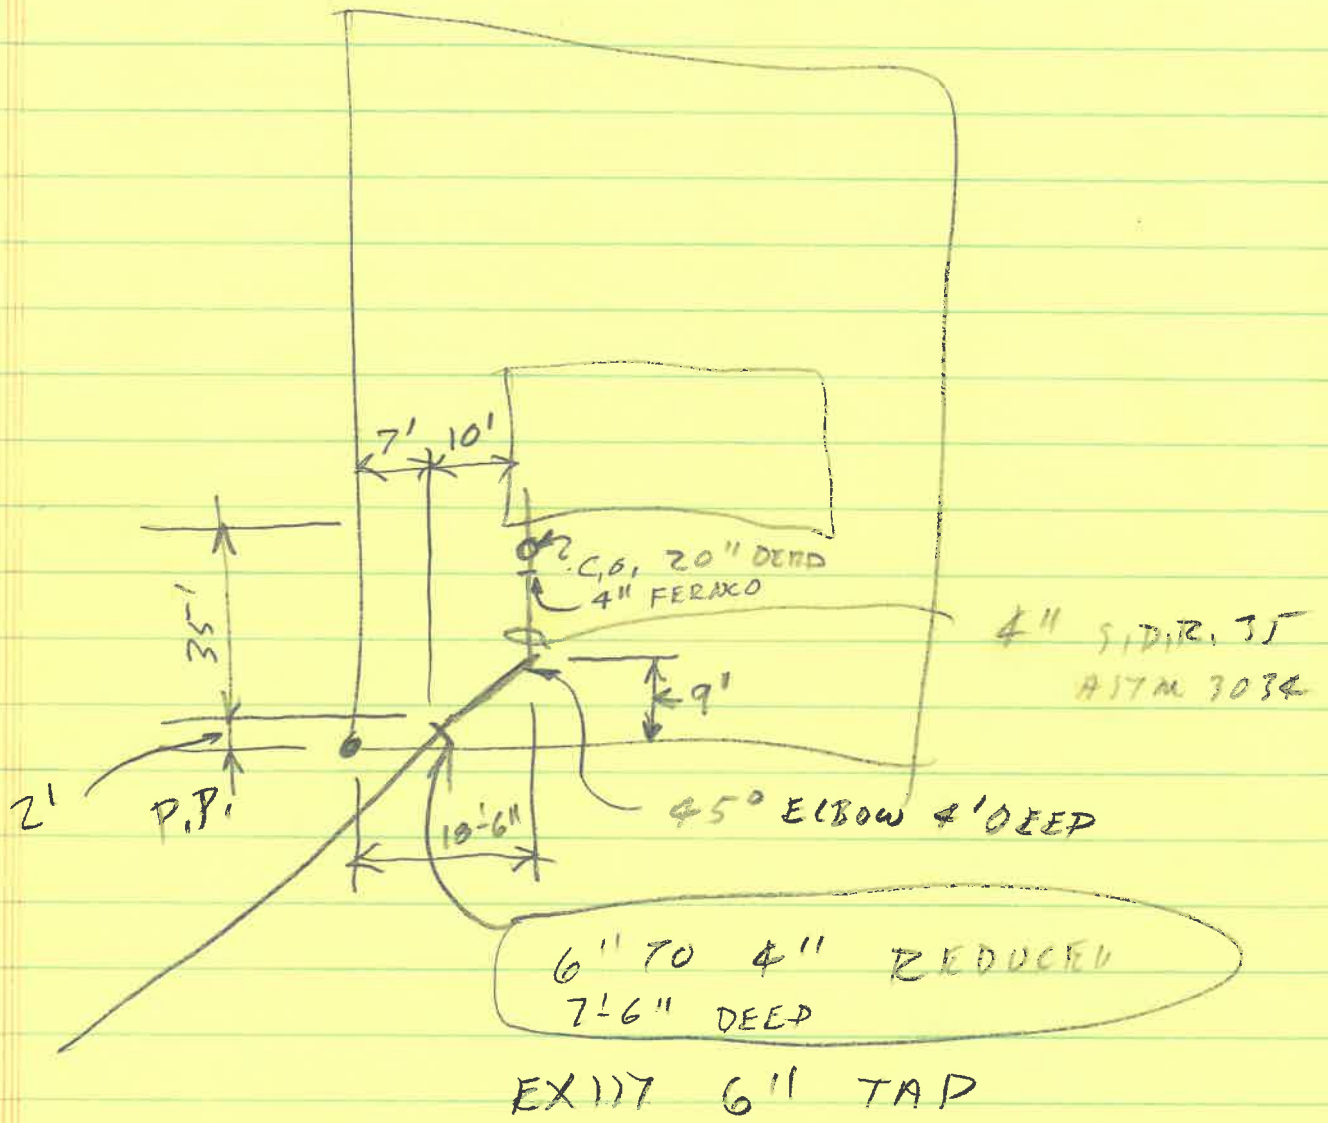 7' 10'
C.O. 20" DEEP
4" FERNCO
35'
4" S.D.R. 35
ASTM 3034
9'
2'
P.P.
45° ELBOW 4' DEEP
18'-6"
6" TO 4" REDUCER
7'-6" DEEP
EXIST 6" TAP